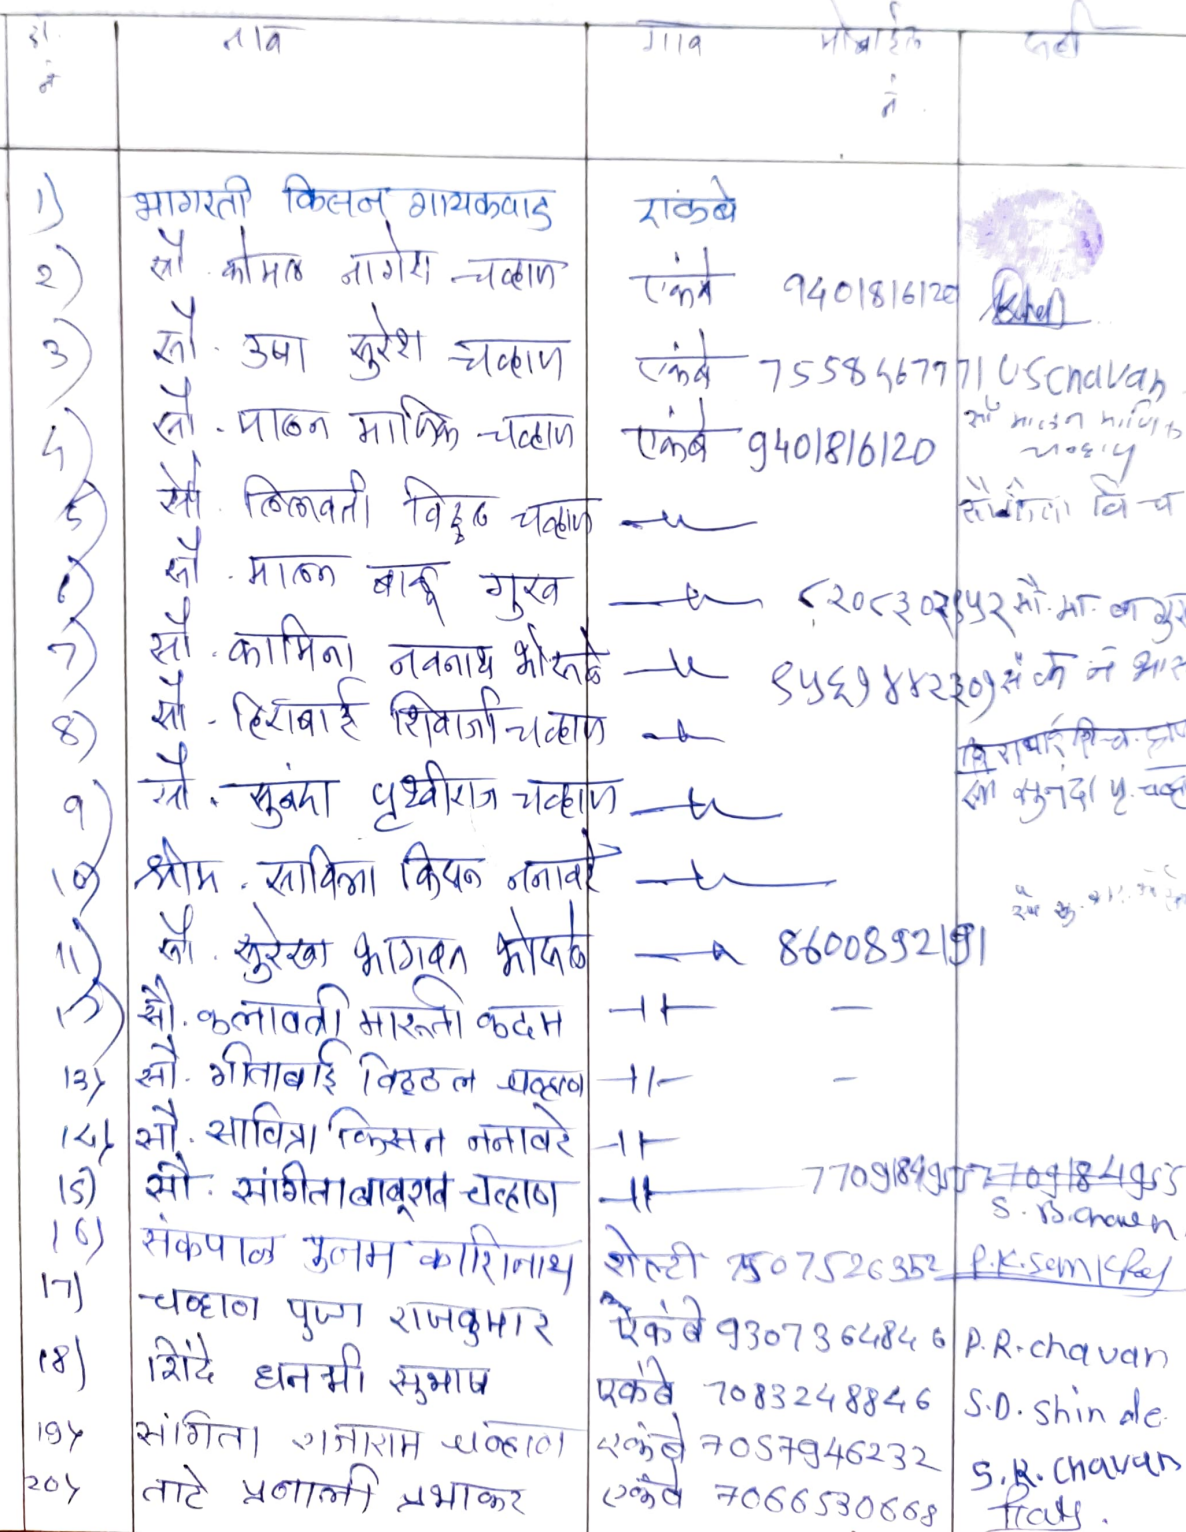 नाव गाव मोबाईल नं सही
1) भागरती किसन गायकवाड एकंबे
2) सौ. कोमल नागेश चव्हाण एकंबे 9401816120
3) सौ. उषा सुरेश चव्हाण एकंबे 7558467771 U S Chavan
4) सौ. मालन माणिक चव्हाण एकंबे 9401816120 सौ मालन माणिक चव्हाण
5) सौ. लिलावती विठ्ठल चव्हाण —〃—
6) सौ. मालन बापू गुरव —〃—
7) सौ. कामिना नवनाथ भोसले —〃—
8) सौ. हिराबाई शिवाजी चव्हाण —〃—
9) सौ. सुनंदा पृथ्वीराज चव्हाण —〃— सौ सुनंदा पृ. चव्हा
10) श्रीम. सावित्रा किसन ननावरे —〃—
11) सौ. सुरेखा भागवत भोसले —〃— 8600892191
12) सौ. कलावती मारूती कदम —〃— –
13) सौ. गीताबाई विठ्ठल चव्हाण —〃— –
14) सौ. सावित्रा किसन ननावरे —〃—
15) सौ. संगिता बाबूराव चव्हाण —〃— S. B. Chavan
16) संकपाळ पुनम काशिनाथ शेल्टी 7507526352
17) चव्हाण पुजा राजकुमार एकंबे 9307364846 P.R. chavan
18) शिंदे धनश्री सुभाष एकंबे 7083248846 S.D. Shinde
19) संगिता राजाराम चव्हाण एकंबे 7057946232 S.R. Chavan
20) ताटे प्रनाली प्रभाकर एकंबे 7066530668